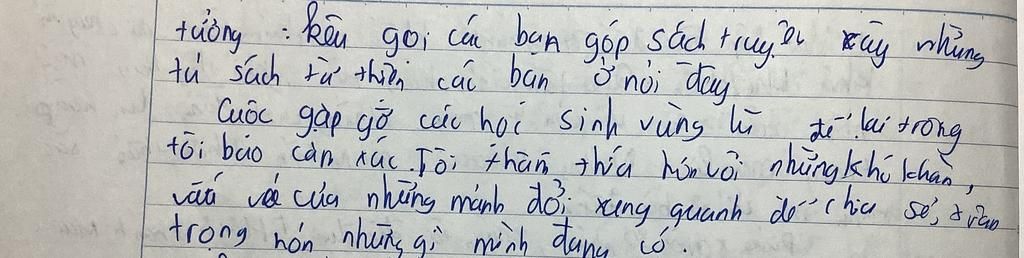 tưởng : kêu gọi các bạn góp sách truyện xây những
tủ sách từ thiện các bạn ở nơi đây
Cuộc gặp gỡ các học sinh vùng lũ để lại trong
tôi bao cảm xúc. Tôi thấm thía hơn với những khó khăn,
vất vả của những mảnh đời xung quanh để chia sẻ, trân
trọng hơn những gì mình đang có.